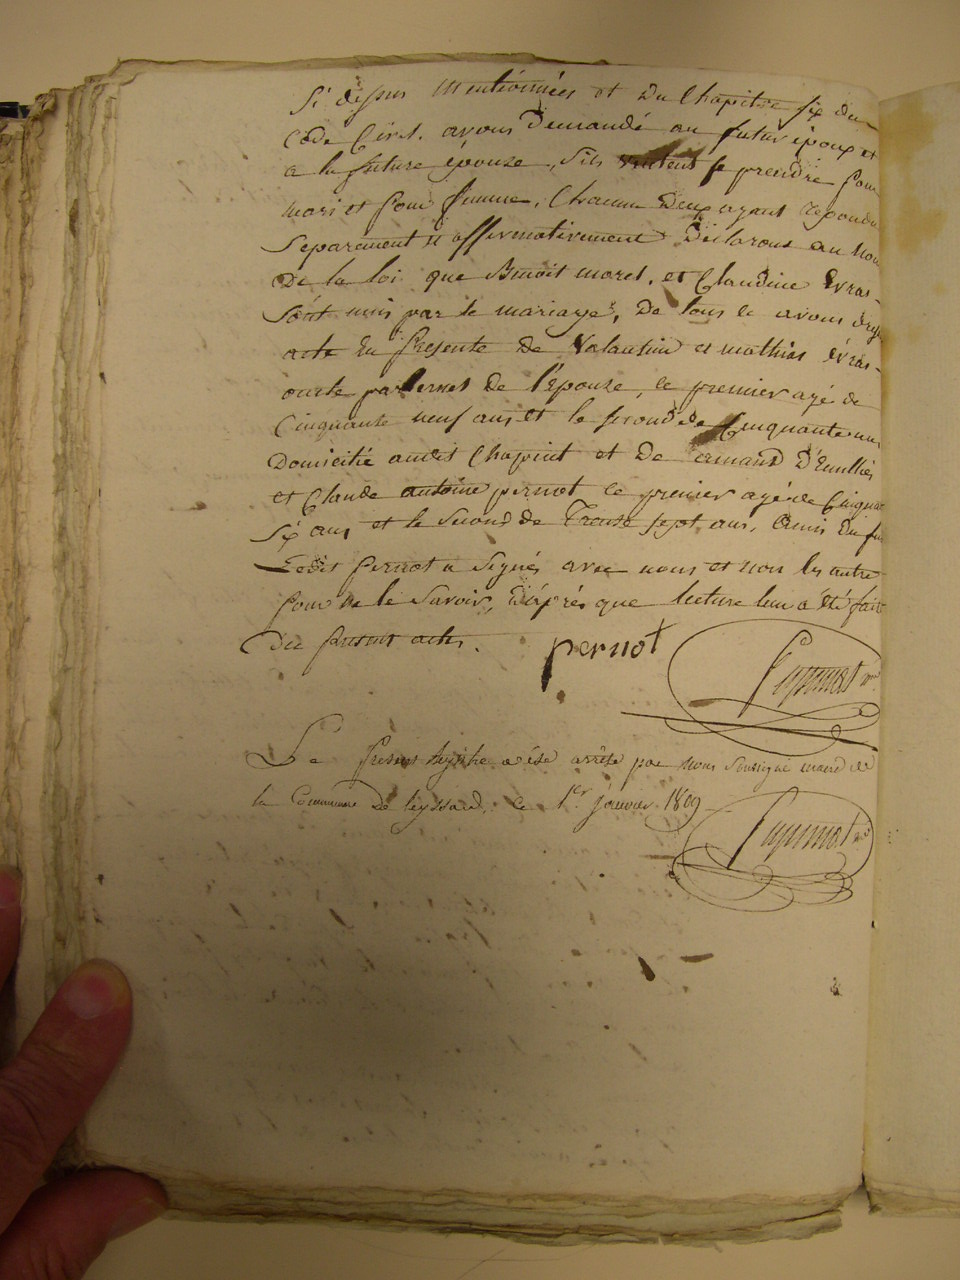 Si dessus mentionnées et du Chapitre six du
Code Civil. avons demandé au futur époux et
a la future épouze, s'ils veulent se prendre pour
mari et pour femme, Chacun deux ayant repondu
Separement et affirmativement Déclarons au nom
De la loi que Benoit morel, et Claudine Evras-
Sont unis par le mariage, De tous ce avons dressé
acte En presente de Valantin et mathias évras-
oncle paternel de l'épouze, le premier agé de
Cinquante neuf ans et le second de Cinquante un
Domicilié audit Chapint et De armand D'Emillieu
et Claude antoine pernot le premier agé de Cinquante
Six ans et le Second de Trente sept ans,
Ledit pernot a Signés avec nous et non les autre
pour ne le Savoir, D'après que lecture leur a été fait
Du present acte. pernot
Le present Registre a été arrêté par Nous Soussigné maire de
la Commune de Leyssard, ce 1er janvier 1809